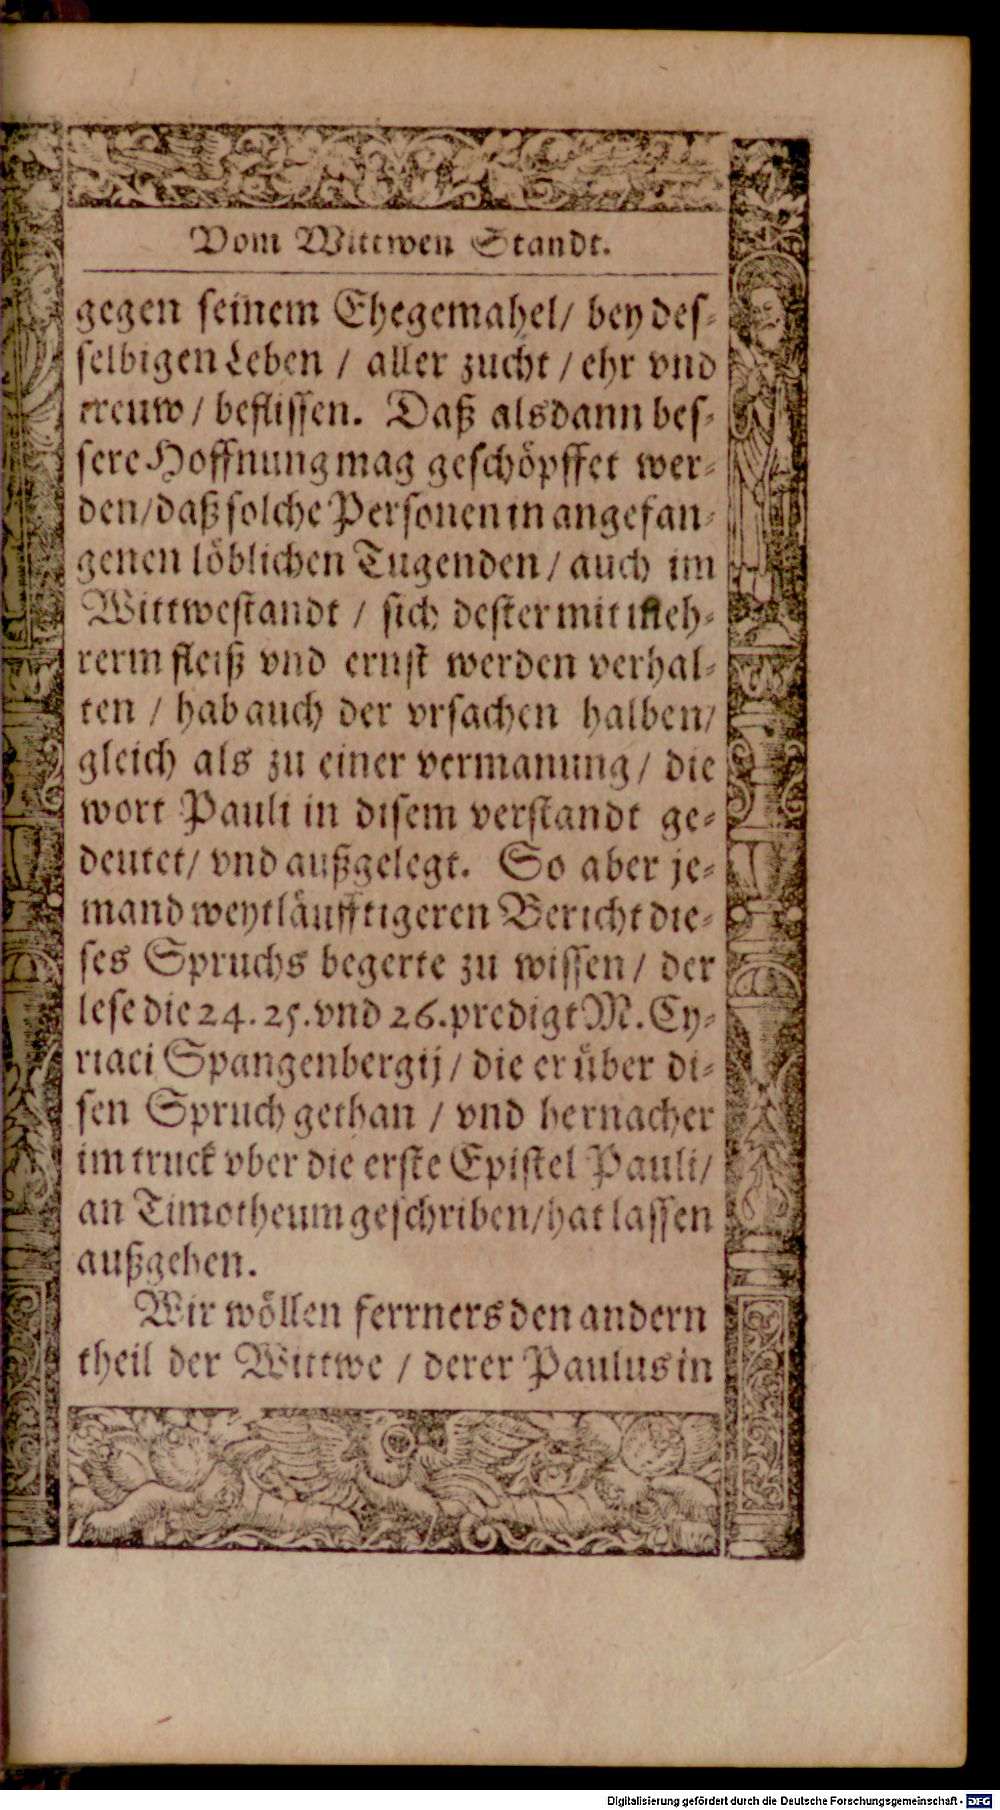 Vom Wittwen Standt.
gegen seinem Ehegemahel/ bey des-
selbigen Leben / aller zucht / ehr vnd
treuw / beflissen. Daß alsdann bes-
sere Hoffnung mag geschöpffet wer-
den/daß solche Personen in angefan-
genen löblichen Tugenden / auch im
Wittwestandt / sich dester mit meh-
rerm fleiß vnd ernst werden verhal-
ten / hab auch der vrsachen halben/
gleich als zu einer vermanung / die
wort Pauli in disem verstandt ge-
deutet/ vnd außgelegt. So aber je-
mand weytläufftigeren Bericht die-
ses Spruchs begerte zu wissen / der
lese die 24. 25. vnd 26. predigt M. Cy-
riaci Spangenbergij / die er über di-
sen Spruch gethan / vnd hernacher
im truck vber die erste Epistel Pauli/
an Timotheum geschriben/hat lassen
außgehen.
Wir wöllen ferrners den andern
theil der Wittwe / derer Paulus in
Digitalisierung gefördert durch die Deutsche Forschungsgemeinschaft - DFG